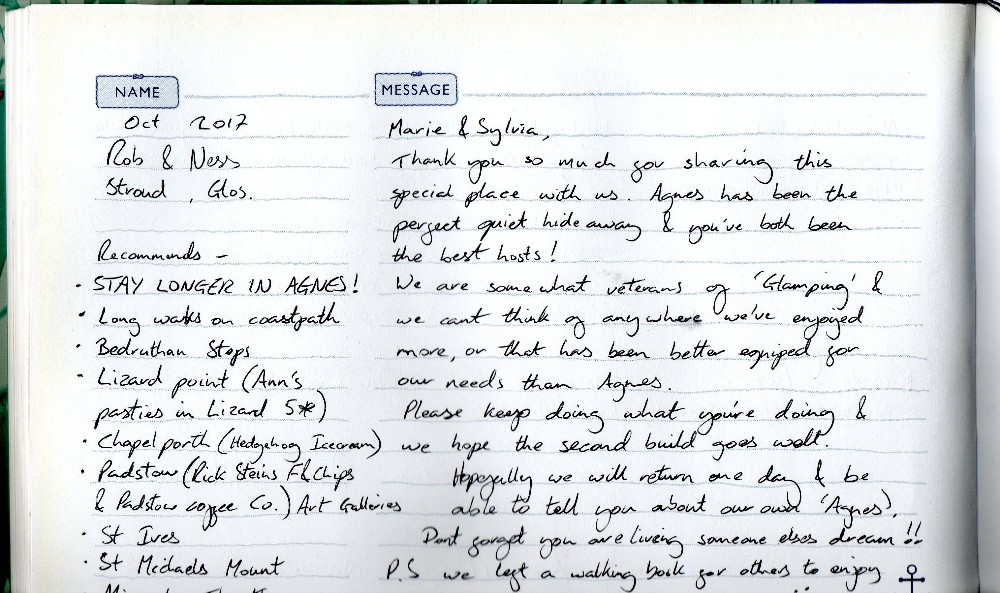 NAME
Oct 2017
Rob & Ness
Stroud, Glos.
Recommends -
· STAY LONGER IN AGNES!
· Long walks on coastpath
· Bedruthan Steps
- Lizard point (Ann's
pasties in Lizard 5*)
· Chapel porth (Hedgehog Icecream)
· Padstow (Rick Steins F&Chips
& Padstow coffee Co.) Art Galleries
· St Ives
· St Michaels Mount
MESSAGE
Marie & Sylvia,
Thank you so much for sharing this
special place with us. Agnes has been the
perfect quiet hideaway & you've both been
the best hosts!
We are somewhat veterans of 'Glamping' &
we cant think of anywhere we've enjoyed
more, or that has been better equiped for
our needs than Agnes.
Please keep doing what you're doing &
we hope the second build goes well.
Hopefully we will return one day & be
able to tell you about our own 'Agnes'.
Dont forget you are living someone elses dream!!
P.S we left a walking book for others to enjoy